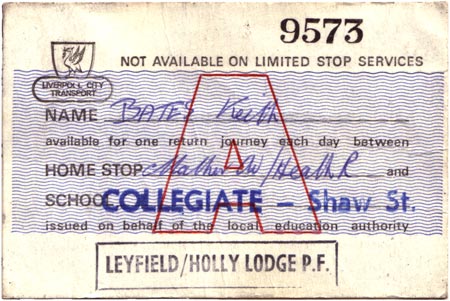 9573
NOT AVAILABLE ON LIMITED STOP SERVICES
LIVERPOOL CITY
TRANSPORT
NAME BATES Keith
available for one return journey each day between
HOME STOP Mather Av/Heath R and
SCHOOL COLLEGIATE - Shaw St.
issued on behalf of the local education authority
A
LEYFIELD/HOLLY LODGE P.F.